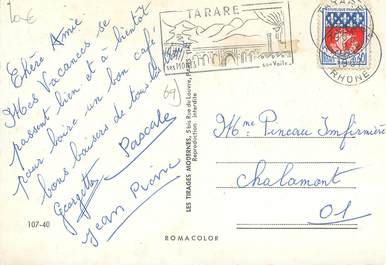 10€
Chère Amie
Mes Vacances se
passent bien et à bientôt
pour boire un bon café
bons baisers de tous
Georgette Pascale
Jean Pierre
69
TARARE
RHONE
LES TIRAGES MODERNES, 5 bis Rue du Louvre, PARIS
Reproduction interdite
Mme Pineau Infirmière
Chalamont
01
107-40
ROMACOLOR